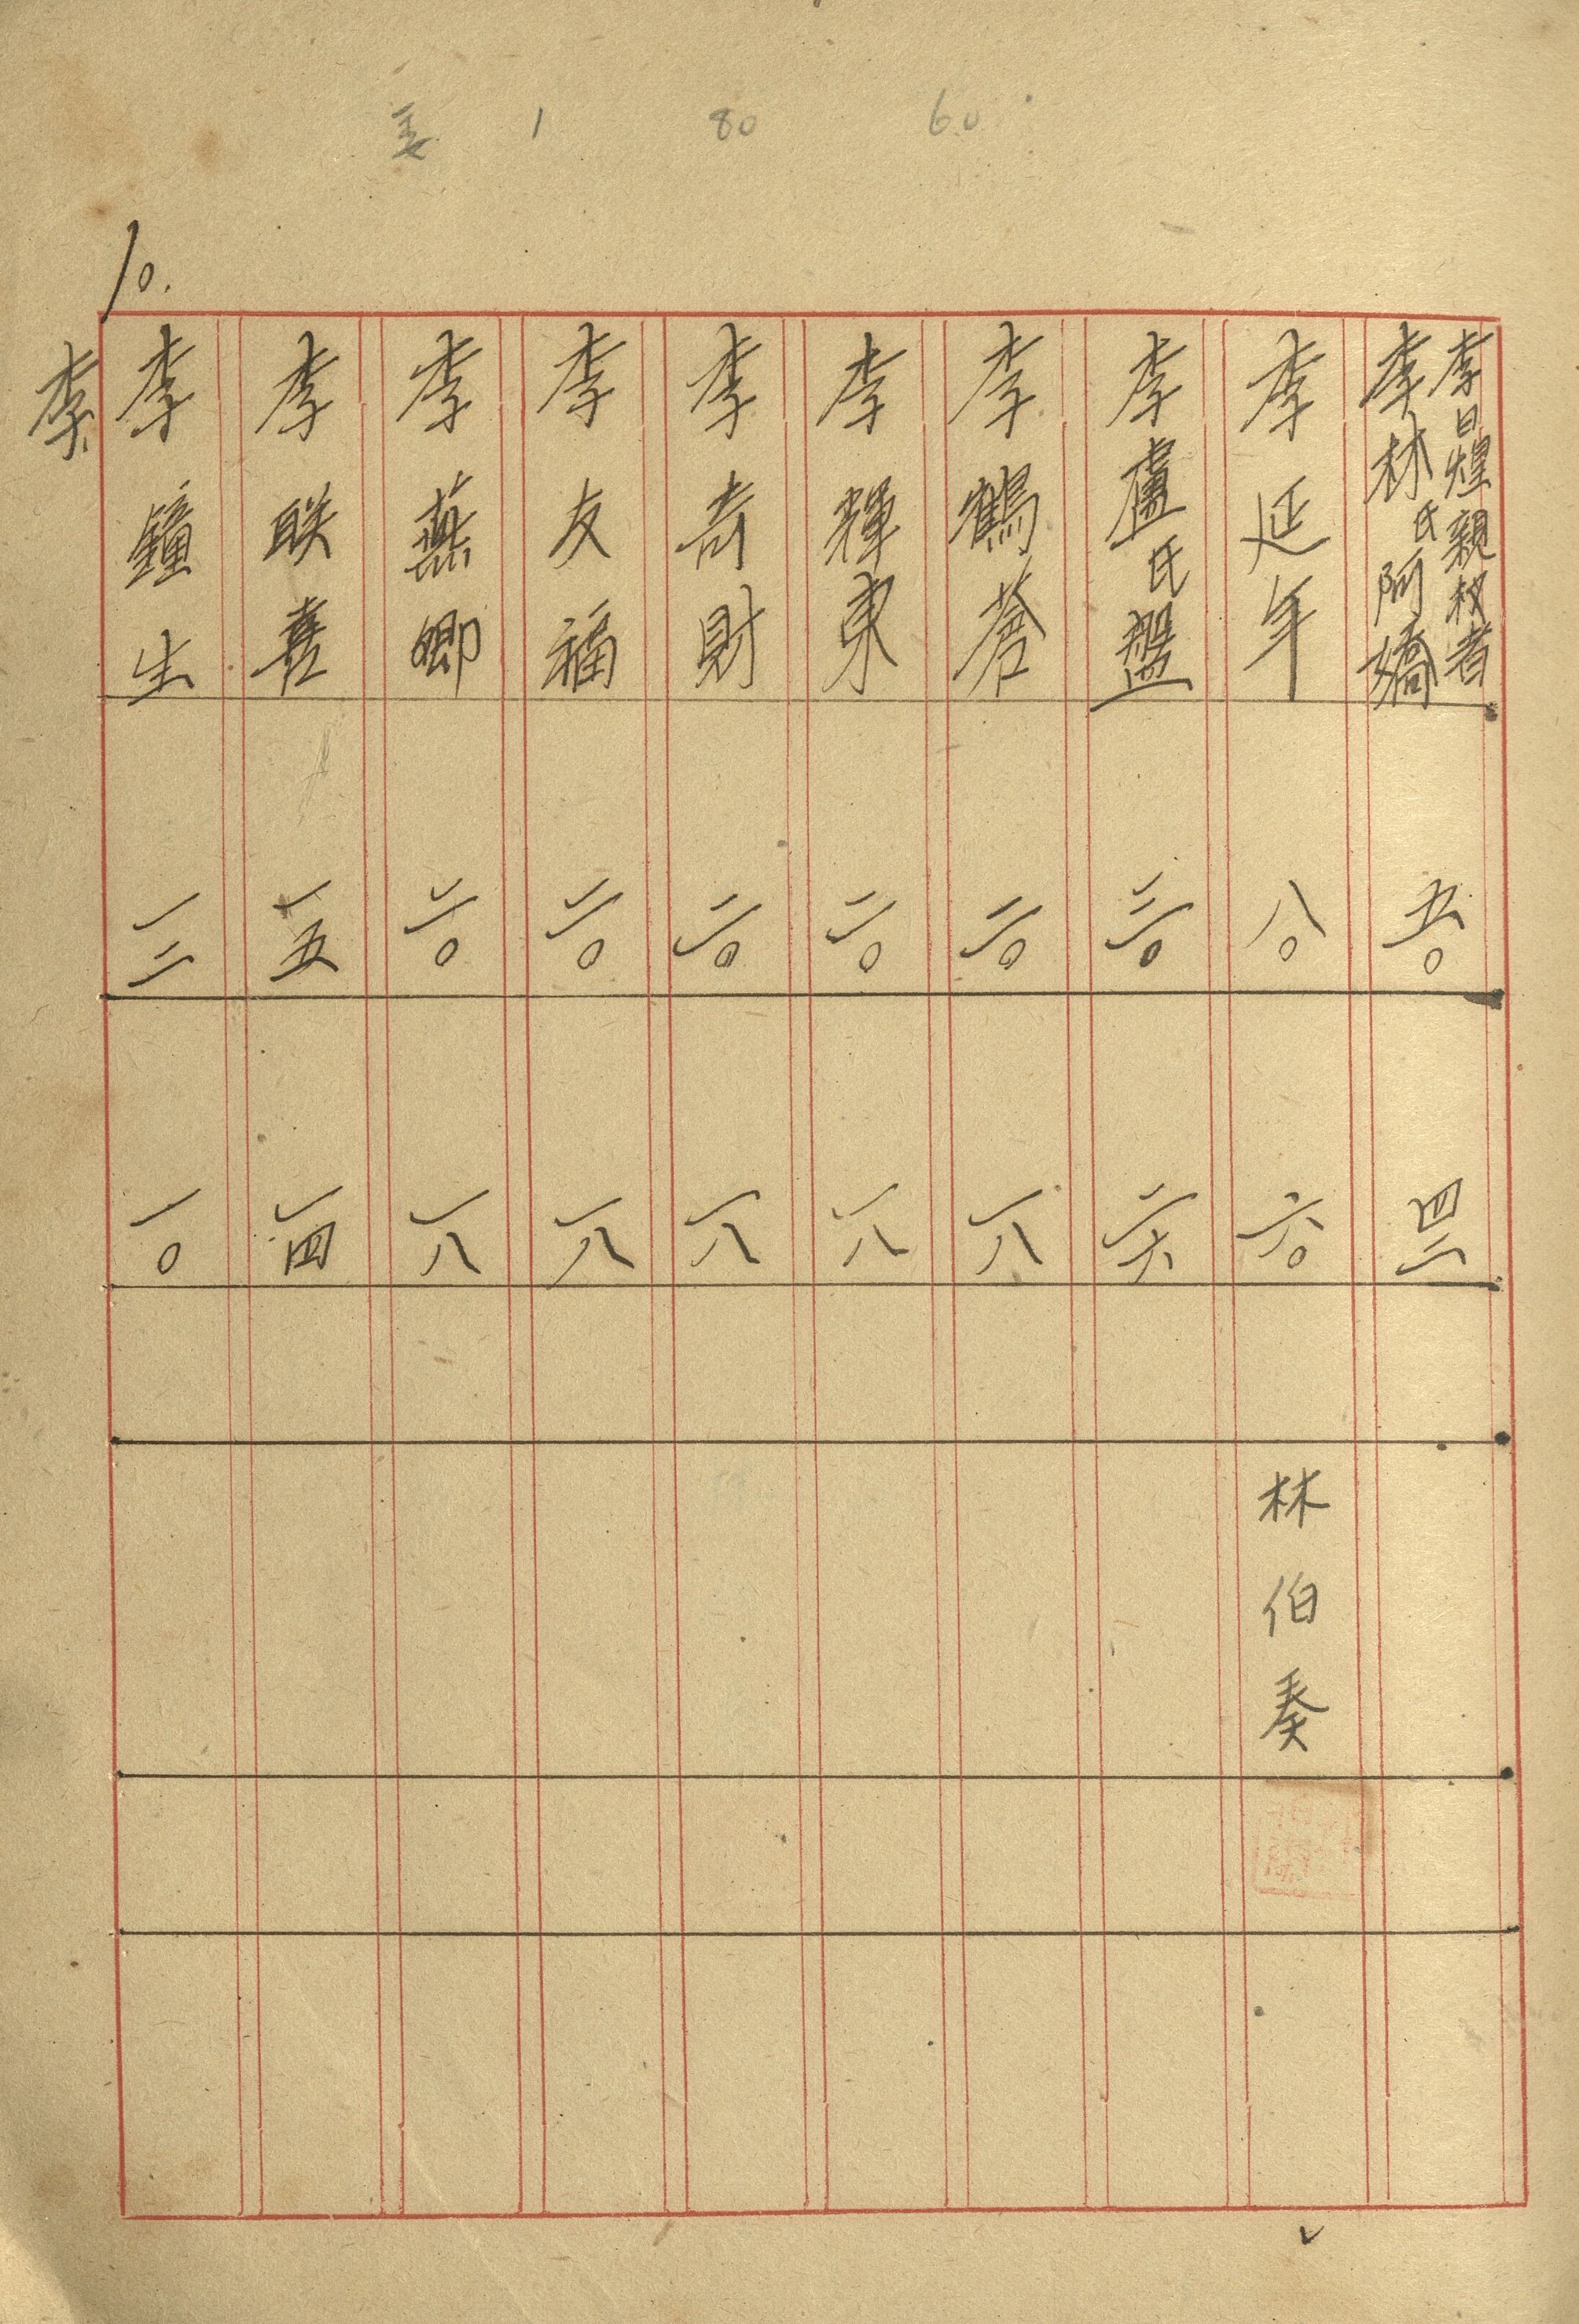 委 1 80 60
10.
李
李日煌親权者
李林氏阿嬌 五〇 四二
李延年 八〇 六〇 林伯奏
李盧氏盤 三〇 二六
李鶴 二〇 一八
李輝東 二〇 一八
李奇財 二〇 一八
李友福 二〇 一八
李燕卿 二〇 一八
李联喜 一五 一四
李鐘生 一二 一〇